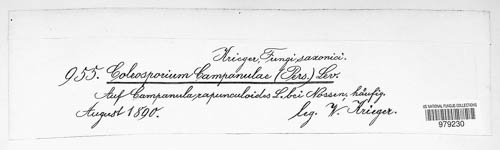 Krieger, Fungi saxonici.
955. Coleosporium Campanulae (Pers.) Lev.
Auf Campanula rapunculoides L. bei Nossen, häufig.
August 1890. leg. W. Krieger.
US NATIONAL FUNGUS COLLECTIONS
979230